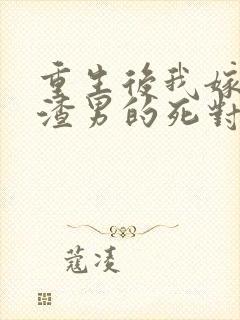 重生後我嫁
渣男的死對
蔻凌